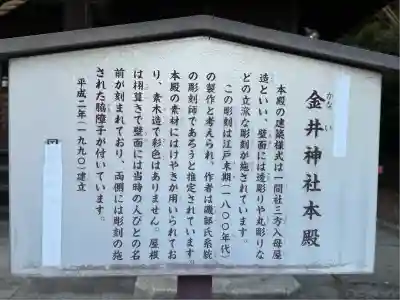 金井神社本殿
かな い
本殿の建築様式は一間社三方入母屋
造といい、壁面には透彫りや丸彫りな
どの立派な彫刻が施されています。
この彫刻は江戸末期(一八〇〇年代)
の製作と考えられ、作者は磯部氏系統
の彫刻師であろうと推定されています。
本殿の素材にはけやきが用いられてお
り、素木造で彩色はありません。屋根
は栩葺きで壁面には当時の人びとの名
前が刻まれており、両側には彫刻の施
された脇障子が付いています。
平成二年(一九九〇)建立